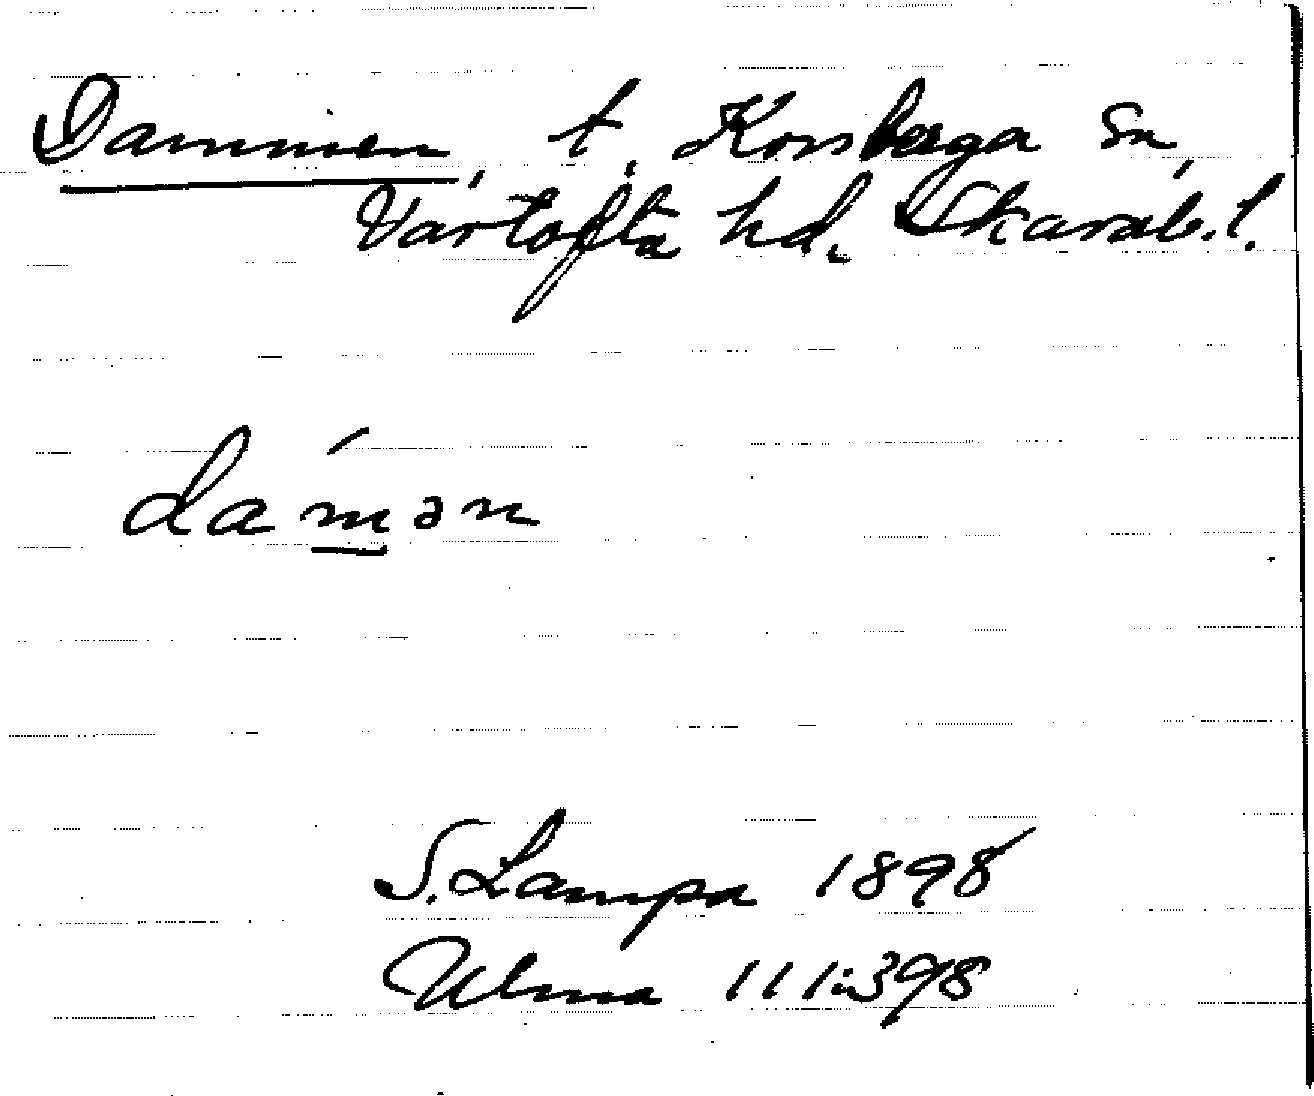 Dammen, t. Korsberga sn,
Vartofta hd. Skarab.l.
daḿ̲ən
S. Lampa 1898
Ulma 111:398